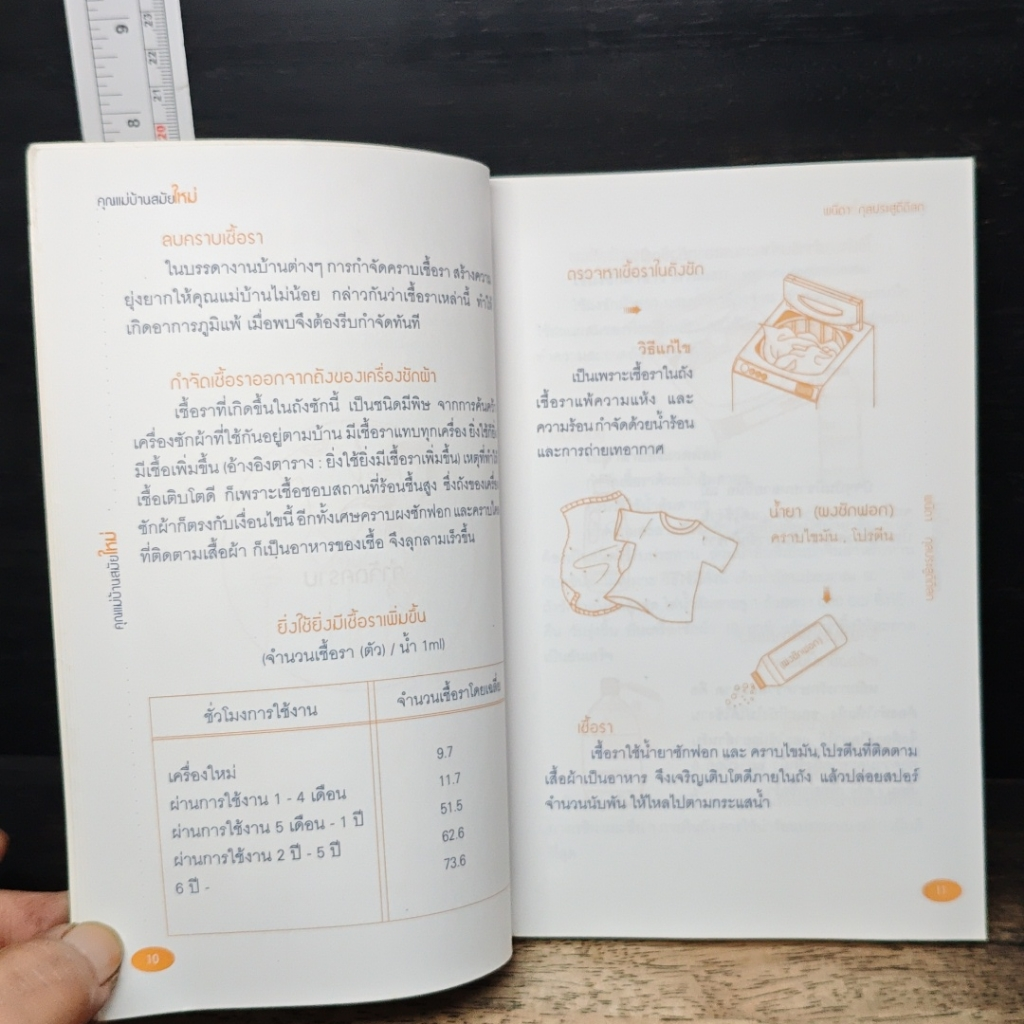 9
23
22
21
8
20
คุณแม่บ้านสมัยใหม่
ลบคราบเชื้อรา
ในบรรดางานบ้านต่างๆ การกำจัดคราบเชื้อรา สร้างความ
ยุ่งยากให้คุณแม่บ้านไม่น้อย กล่าวกันว่าเชื้อราเหล่านี้
เกิดอาการภูมิแพ้ เมื่อพบจึงต้องรีบกำจัดทันที
กำจัดเชื้อราออกจากถังของเครื่องซักผ้า
เชื้อราที่เกิดขึ้นในถังซักนี้ เป็นชนิดมีพิษ จากการ
เครื่องซักผ้าที่ใช้กันอยู่ตามบ้าน มีเชื้อราแทบทุกเครื่อง
มีเชื้อเพิ่มขึ้น (อ้างอิงตาราง : ยิ่งใช้ยิ่งมีเชื้อราเพิ่มขึ้น)
เชื้อเติบโตดี ก็เพราะเชื้อชอบสถานที่ร้อนชื้นสูง
ซักผ้าก็ตรงกับเงื่อนไขนี้ อีกทั้งเศษคราบผงซักฟอก
ที่ติดตามเสื้อผ้า ก็เป็นอาหารของเชื้อ จึงลุกลามเร็วขึ้น
คุณแม่บ้านสมัยใหม่
ยิ่งใช้ยิ่งมีเชื้อราเพิ่มขึ้น
(จำนวนเชื้อรา (ตัว) / น้ำ 1ml)
ชั่วโมงการใช้งาน จำนวนเชื้อราโดยเฉลี่ย
เครื่องใหม่ 9.7
ผ่านการใช้งาน 1 - 4 เดือน 11.7
ผ่านการใช้งาน 5 เดือน - 1 ปี 51.5
ผ่านการใช้งาน 2 ปี - 5 ปี 62.6
6 ปี - 73.6
10
ตรวจหาเชื้อราในถังซัก
วิธีแก้ไข
เป็นเพราะเชื้อราในถัง
เชื้อราแพ้ความแห้ง และ
ความร้อน กำจัดด้วยน้ำร้อน
และการถ่ายเทอากาศ
น้ำยา (ผงซักฟอก)
คราบไขมัน , โปรตีน
(ผงซักฟอก)
เชื้อรา
เชื้อราใช้น้ำยาซักฟอก และ คราบไขมัน,โปรตีนที่ติดตาม
เสื้อผ้าเป็นอาหาร จึงเจริญเติบโตดีภายในถัง แล้วปล่อยสปอร์
จำนวนนับพัน ให้ไหลไปตามกระแสน้ำ
11